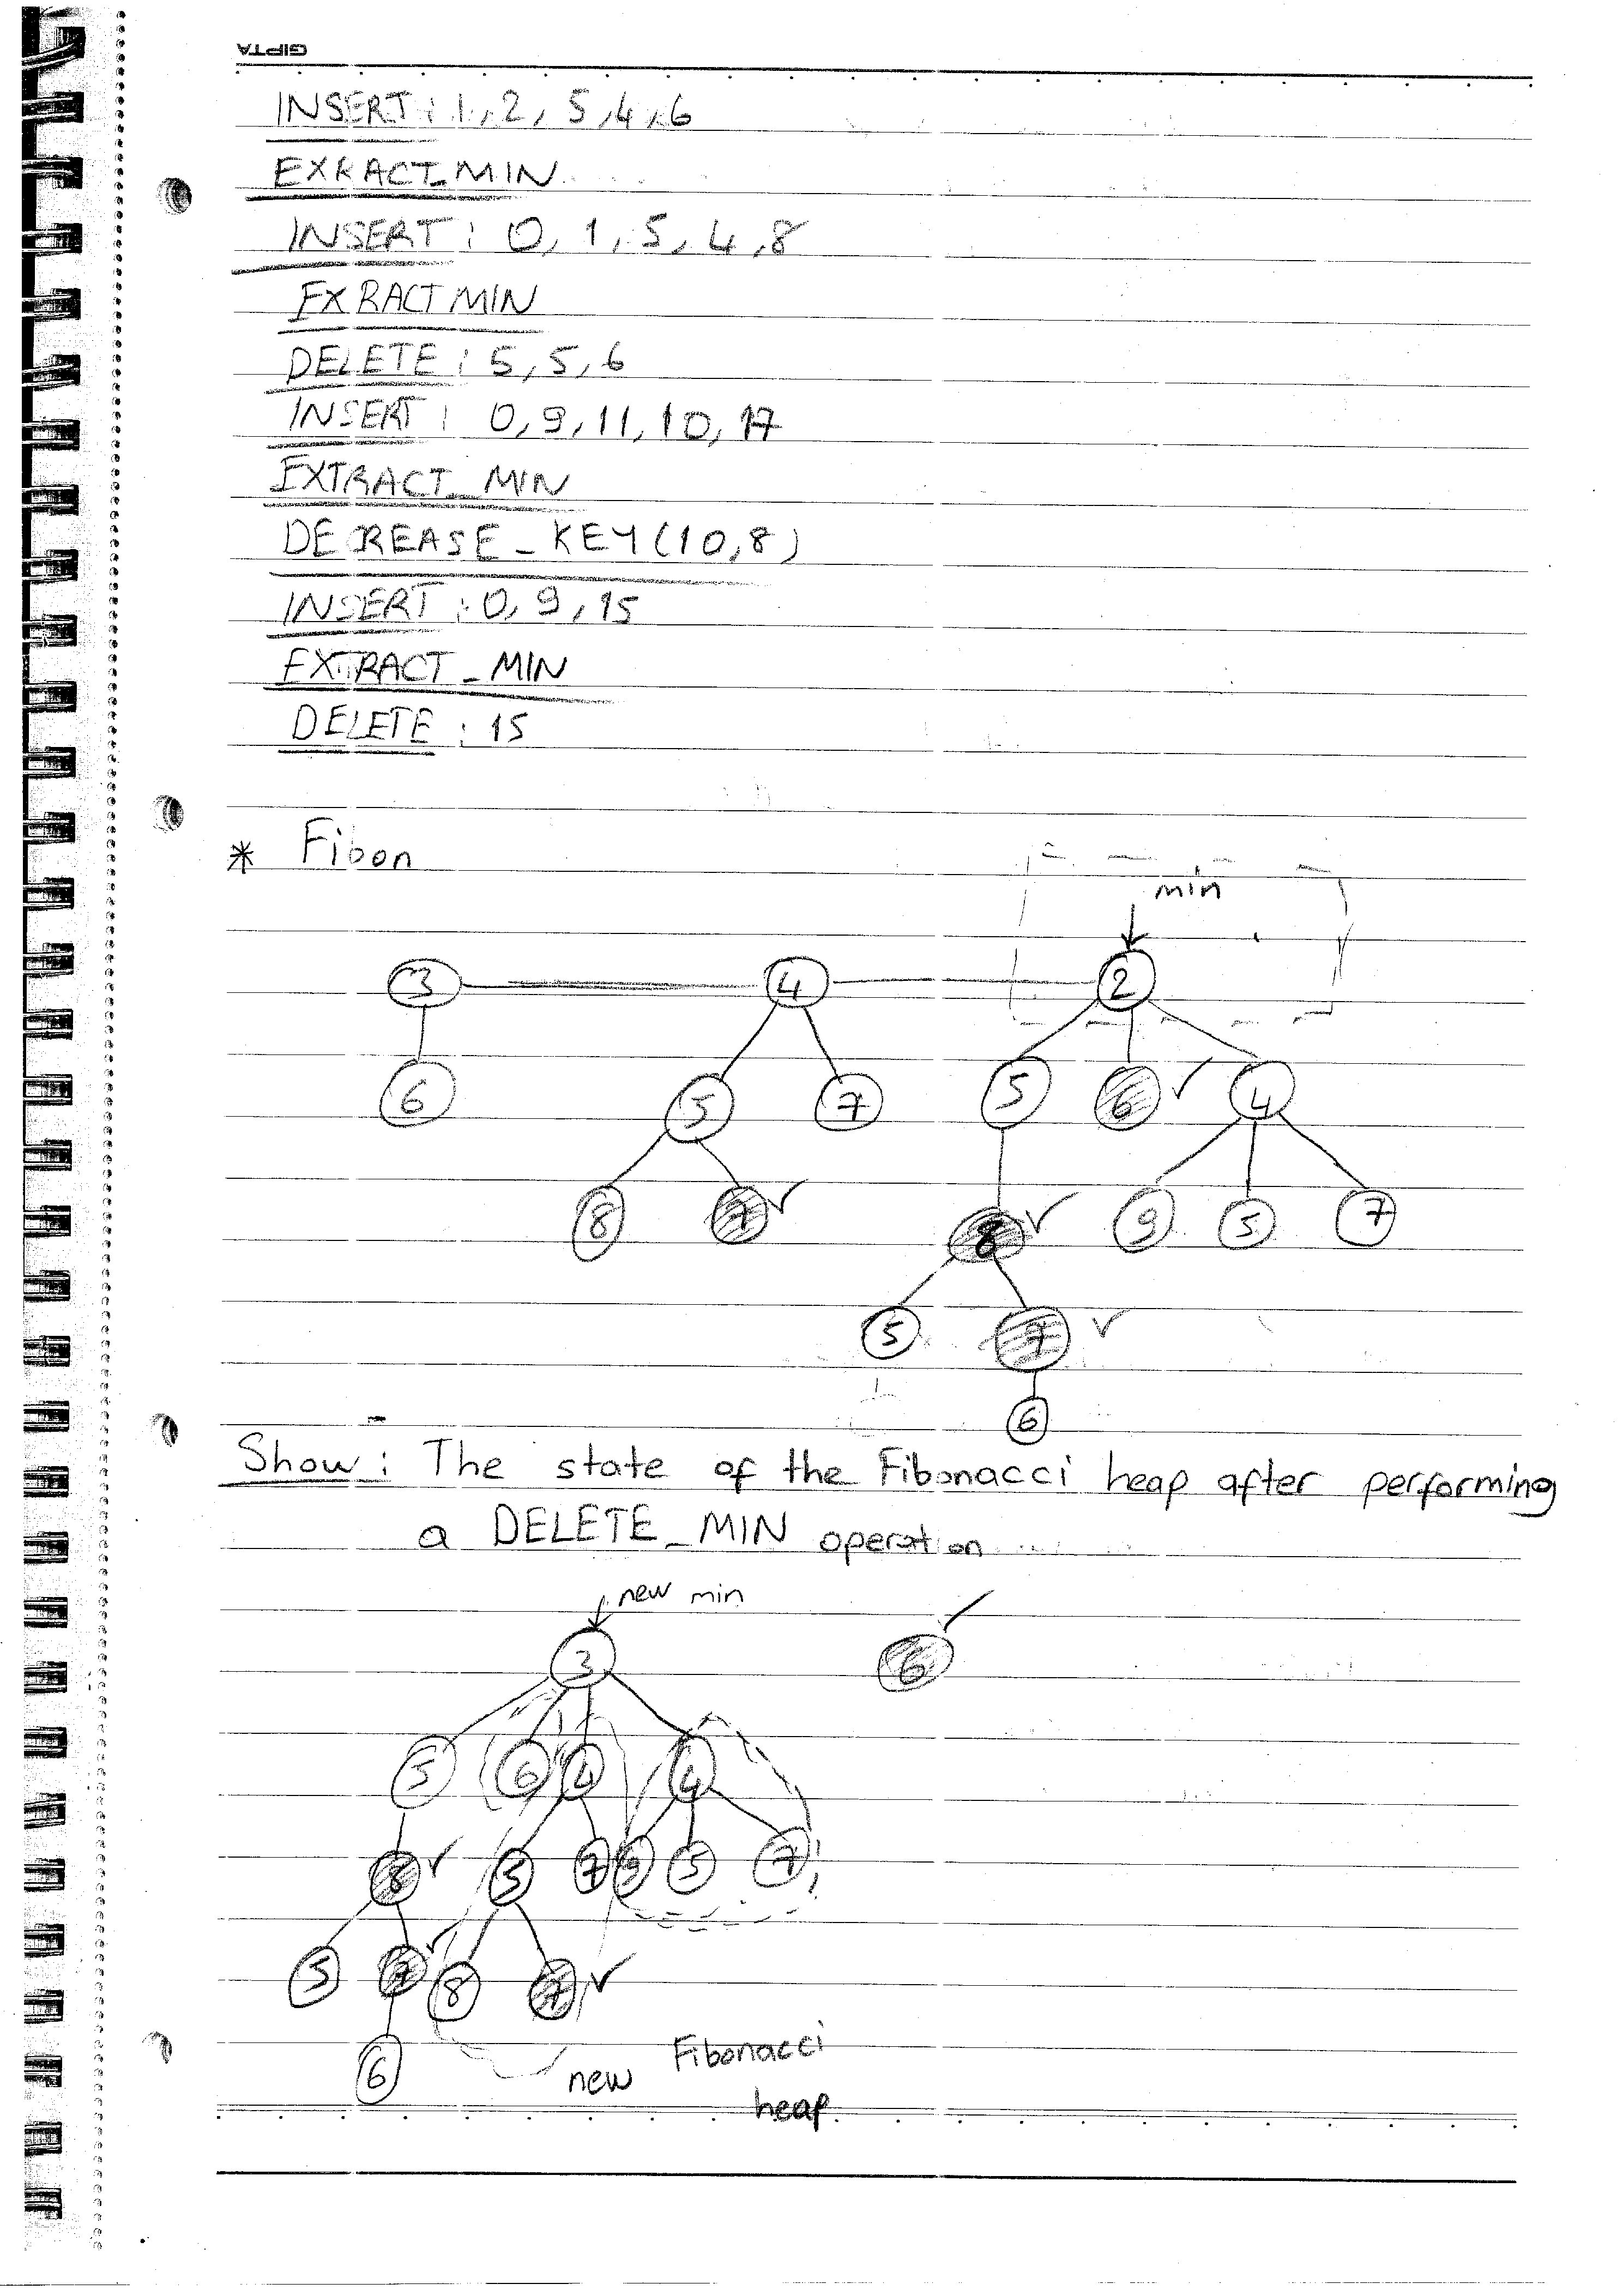 GIPTA
INSERT : 1, 2, 5, 4, 6
EXRACT_MIN
INSERT : 0, 1, 5, 4, 8
EXRACT MIN
DELETE : 5, 5, 6
INSERT : 0, 9, 11, 10, 17
EXTRACT_MIN
DECREASE_KEY(10,8)
INSERT : 0, 9, 15
EXTRACT_MIN
DELETE : 15
* Fibon
min
3 4 2
6 5 7 5 6 4
8 7 8 9 5 7
5 7
6
Show : The state of the Fibonacci heap after performing
a DELETE_MIN operation
new min
3 6
5 6 4 4
8 5 7 9 5 7
5 7 8 7
6
new Fibonacci
heap.